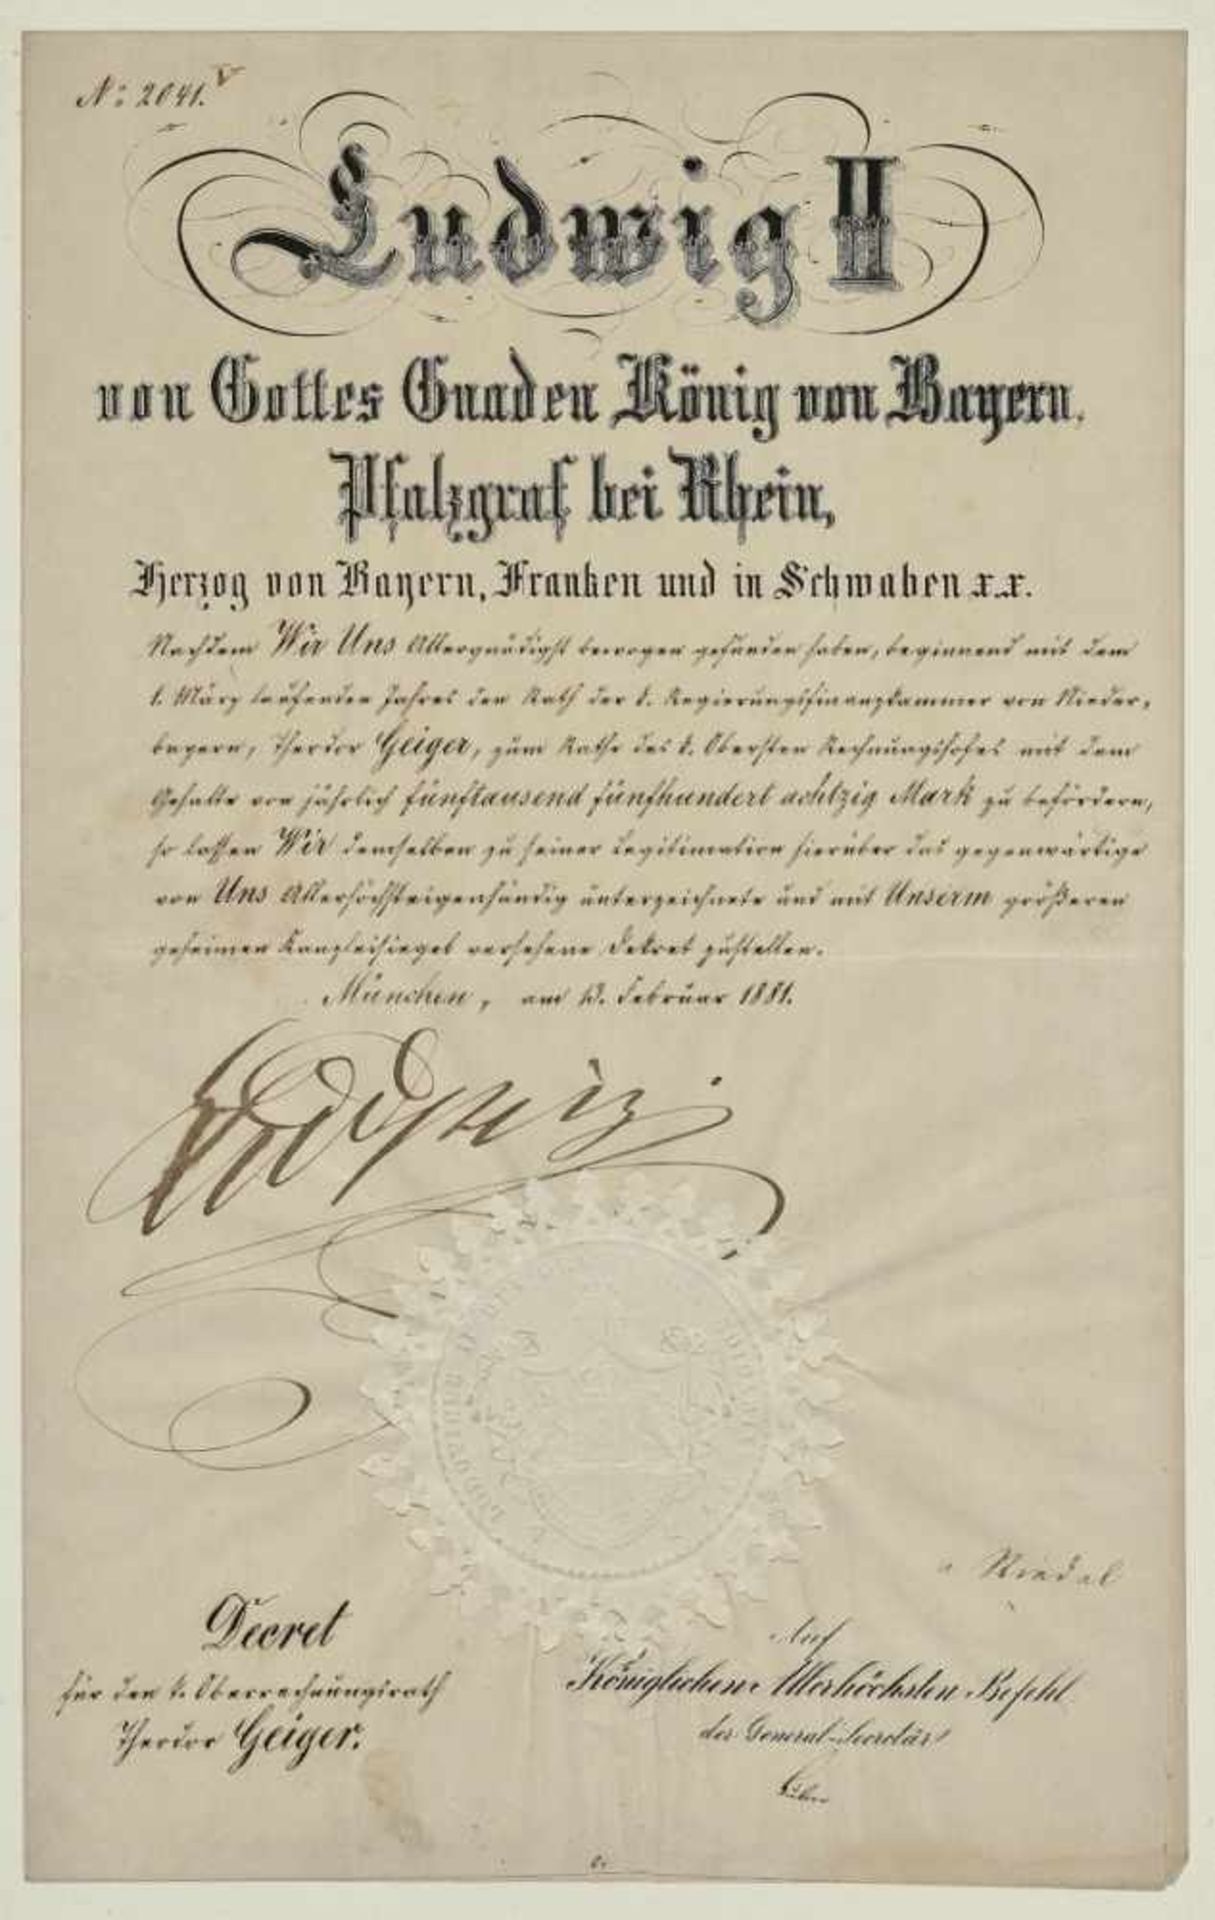 No: 2041.
Ludwig II
von Gottes Gnaden König von Bayern,
Pfalzgraf bei Rhein,
Herzog von Bayern, Franken und in Schwaben x.x.
Nachdem Wir Uns Allergnädigst bewogen gefunden haben, beginnend mit dem
1. März laufenden Jahres den Rath der k. Regierungsfinanzkammer von Nieder-
bayern, Theodor Geiger, zum Rathe des k. Obersten Rechnungshofes mit dem
Gehalte von jährlich fünftausend fünfhundert achtzig Mark zu befördern,
so lassen Wir demselben zu seiner Legitimation hierüber das gegenwärtige
von Uns Allerhöchsteigenhändig unterzeichnete und mit Unserm größeren
geheimen Kanzleisiegel versehene Dekret zustellen.
München, am 13. Februar 1881.
Ludwig
v Riedel
Decret
für den k. Oberrechnungsrath
Theodor Geiger.
Auf
Königlichen Allerhöchsten Befehl
der General-Secretär